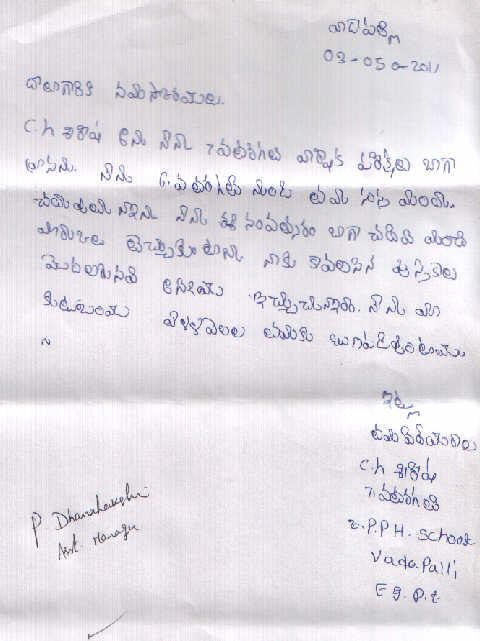 వాడపల్లి
03-05-2011
దాతగారికి నమస్కారములు.
C.h శిరీష అను నేను 7వతరగతి వార్షిక పరీక్షలు బాగా
వ్రాసాను. నేను 6వతరగతి నుండి తమ సంస్థ నుండి
నేను ఈ సంవత్సరం బాగా చదివి మంచి
మార్కులు తెచ్చుకుంటాను నాకు కావలసిన పుస్తకాలు
మొదలగునవి ఇచ్చుచున్నారు. నేను మా
కుటుంబము తమకు
ఇట్లు
C.h శిరీష
7వతరగతి
Z.P.P.H. School
Vadapalli
E.g.D.t
P Dhanalakshmi
Asst Manager